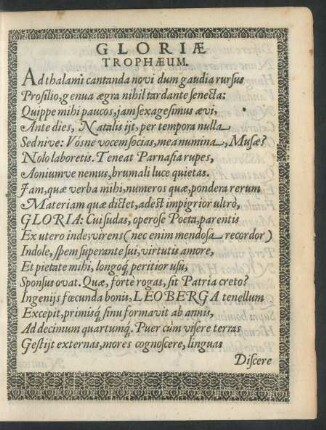 GLORIÆ
TROPHÆUM.
Ad thalami cantanda novi dum gaudia rursus
Prosilio, genua ægra nihil tardante senecta:
Quippe mihi paucos, jam sexagesimus ævi,
Ante dies, Natalis ijt, per tempora nulla
Sed nive: Vósne vocem socias, mea numina, Musæ?
Nolo laboretis. Teneat Parnasia rupes,
Aoniumve nemus, brumali luce quietas.
Jam, quæ verba mihi, numeros quæ, pondera rerum
Materiam quæ dictet, adest impigrior ultrò,
GLORIA: Cui sudas, operose Poeta, parentis
Ex utero inde, virens (nec enim mendosa recordor)
Indole, spem superante sui, virtutis amore,
Et pietate mihi, longoq́ peritior usu,
Sponsus ovat. Quæ, forte rogas, sit Patria creto?
Ingenijs fæcunda bonis, LEOBERGA tenellum
Excepit, primisq́ sinu formavit ab annis,
Ad decimum quartumq́. Puer cùm visere terras
Gestijt externas, mores cognoscere, linguas
Discere